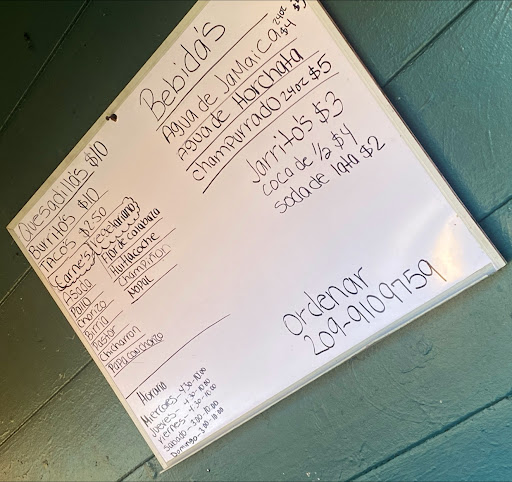 Quesadilla's $10
Burrito's $10
TACO'S $2.50
(Carne's)
Asada
Pollo
Chorizo
Birria
Pastor
Chicharron
Papa con chorizo
(Vegetariano)
Flor de calabaza
Huitlacoche
Champiñon
Nopal
Horario
Miercoles - 4:30-10:00
Jueves - 4:30-10:00
Viernes - 4:30-10:00
Sabado - 3:00-10:00
Domingo - 3:00-10:00
Bebida's
Agua de Jamaica 24oz $4
Agua de Horchata
Champurrado 24oz $5
Jarrito's $3
Coca de 1/2 $4
Soda de lata $2
Ordenar
209-9109759